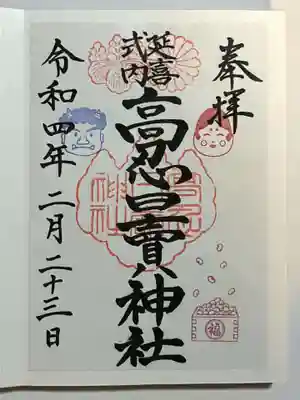 奉拝
延喜
式内
高忍日賣神社
令和四年二月二十三日
福